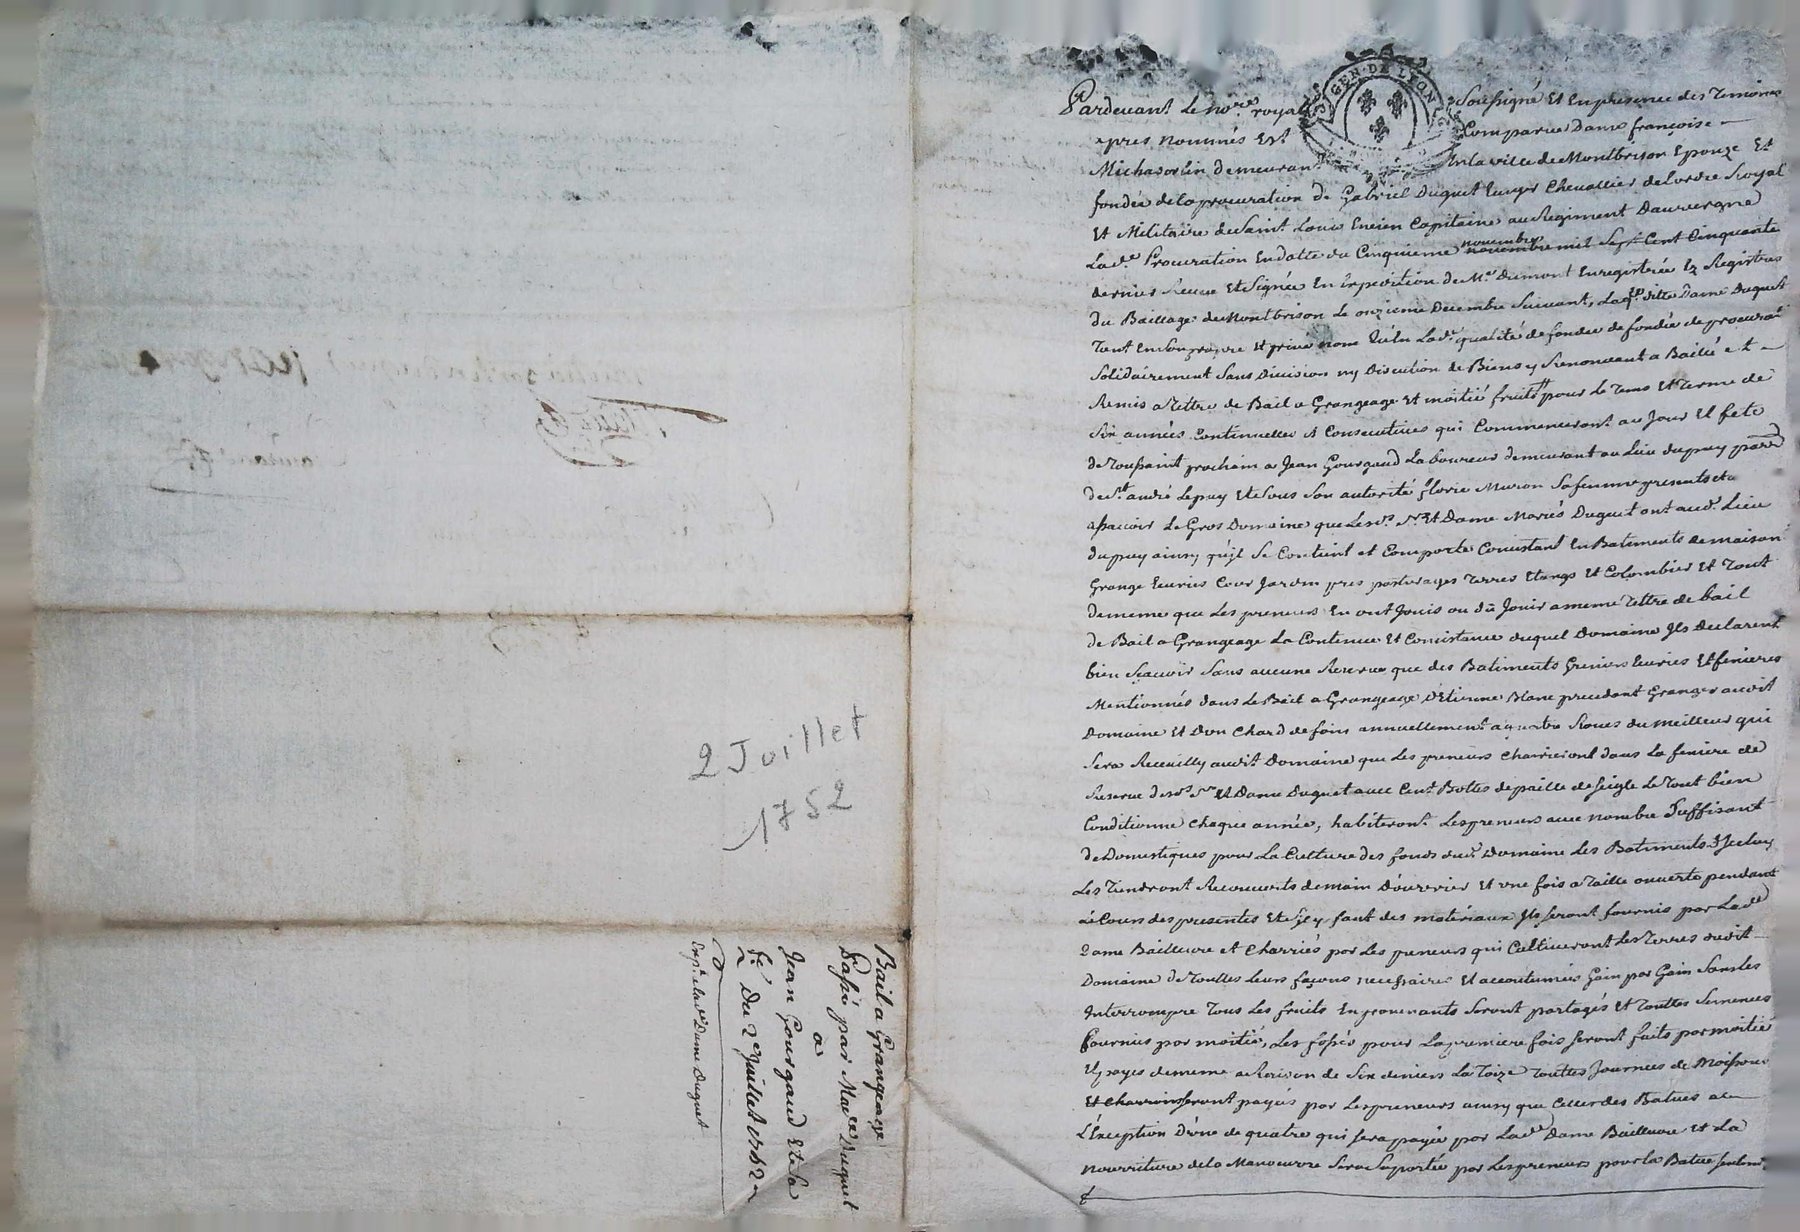 2 Juillet
1752
Bail a Grangeage
passé par Mad.e Duguet
a
Jean Gourgaud Et Sa
fe.
Du 2e Juillet 1752
Exp.n Lad.e Dame Duguet
GEN · DE LYON
Pardevant Le no.re royal Soussigné Et En presence des Temoins
apres nommés Est Comparüe Dame françoise
demeurant En la ville de Montbrison Epouze Et
fondée de la procuration de Gabriel Duguet Ecuyer Chevallier de Lordre Royal
Et Militaire de Saint Louis Encien Capitaine au Regiment Dauvergne
Lad.e Procuration En datte du Cinquieme novembre novembre mil Sept Cent Cinquante
dernier Receue Et Signée En Expedition de M.e Dumont Enregistrée Ez Registres
du Baillage de Montbrison Le onzieme Decembre Suivant, Laq.le ditte Dame Duguet
Tant En Son propre Et privé nom qu'En Lad. qualité de fondée de fondée de procuraon
Solidairement Sans Division ny Discution de Biens y Renonceant a Baillé et
Remis a Tittre de Bail a Grangeage Et moitié fruits pour Le Tems Et Terme de
Six années Continuelles & Consecutives qui Commenceront au Jour Et fete
de Toussaint prochain a Jean Gourgaud Laboureur demeurant au Lieu dupuy par.e
de St. andré Lepuy Et Sous Son autorité florie Muron Sa femme presents
assavoir Le Gros Domaine que Les d.s Sr. Et Dame Mariés Duguet ont aud. Lieu
dupuy ainsy qu'il Se Contient et Comporte Concistant En Batiments de maison
Grange Ecuries Cour Jardin pres pasturages Terres Etangs Et Colombier Et Tout
dememe que Les preneurs En ont Jouis ou dû Jouir a meme Tittre de bail
de Bail a Grangeage La Contenue Et Concistance duquel Domaine Jls Declarent
bien Scavoir Sans aucune Reserve que des Batiments Greniers Ecuries Et fenieres
Mentionnés dans Le Bail a Grangeage D'Etienne Blanc precedent Granger audit
Domaine Et Dun Chard de foin annuellement a quatre Roues du meilleur qui
Sera Receuilly audit Domaine que Les preneurs Charrieront dans La feniere de
Reserve desd. Sr. Et Dame Duguet avec Cent Bottes de paille de Seigle Le Tout bien
Conditionné Chaque année, habiteront Les preneurs avec nombre Suffisant
de Domestiques pour La Culture des fonds dud. Domaine Les Batiments D'Jceluy
Les Tiendront Recouverts de main D'ouvrier Et une fois a Taille ouverte pendant
Le Cours des presentes Et S'il y faut des matériaux Jls Seront fournis par Lad.e
Dame Bailleure et Charriés par Les preneurs qui Cultiveront Les Terres dudit
Domaine de Touttes Leurs façons necessaires Et accoutumées Gain par Gain Sans Les
Interrompre Tous Les fruits En provenants Seront partagés Et Touttes Semences
fournies par moitié, Les fossés pour La premiere fois Seront faits par moitié
Et payés dememe a Raison de Six deniers La Toize Touttes Journées de Moissons
Et Charrois Seront payés par Les preneurs ainsy que Celles des Batues a
L'Exception D'une de quatre qui Sera payée par Lad.e Dame Bailleure Et La
nourriture de la Manoeuvre Sera Suportée par Les preneurs pour la Batue Seulem.t